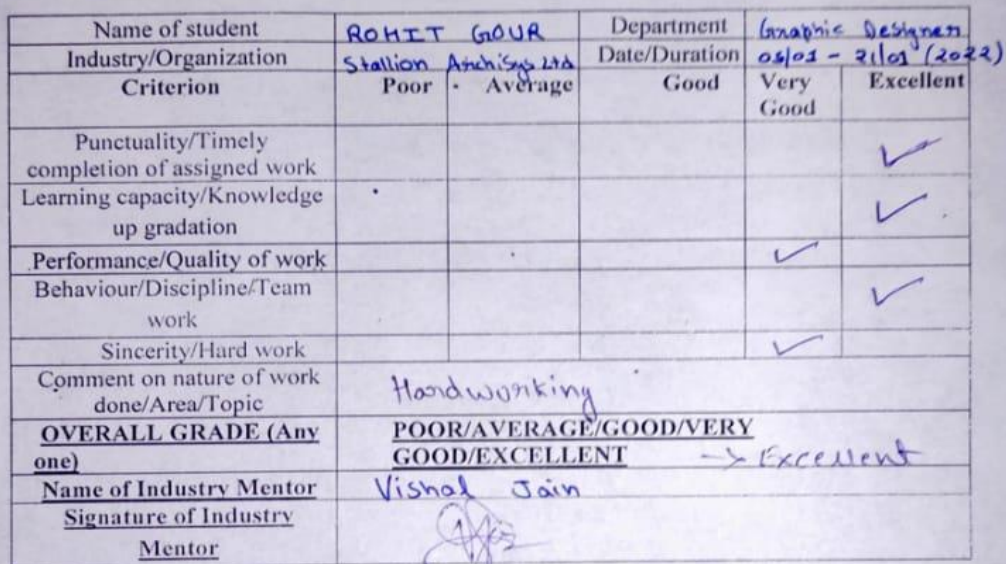 Name of student ROHIT GOUR Department Graphic Designer
Industry/Organization Stallion ArchiSys Ltd Date/Duration 05/01 - 21/01 (2022)
Criterion Poor Average Good Very Excellent
Good
Punctuality/Timely
completion of assigned work ✓
Learning capacity/Knowledge
up gradation ✓
Performance/Quality of work ✓
Behaviour/Discipline/Team
work ✓
Sincerity/Hard work ✓
Comment on nature of work
done/Area/Topic Hardworking
OVERALL GRADE (Any POOR/AVERAGE/GOOD/VERY
one) GOOD/EXCELLENT -> Excellent
Name of Industry Mentor Vishal Jain
Signature of Industry
Mentor